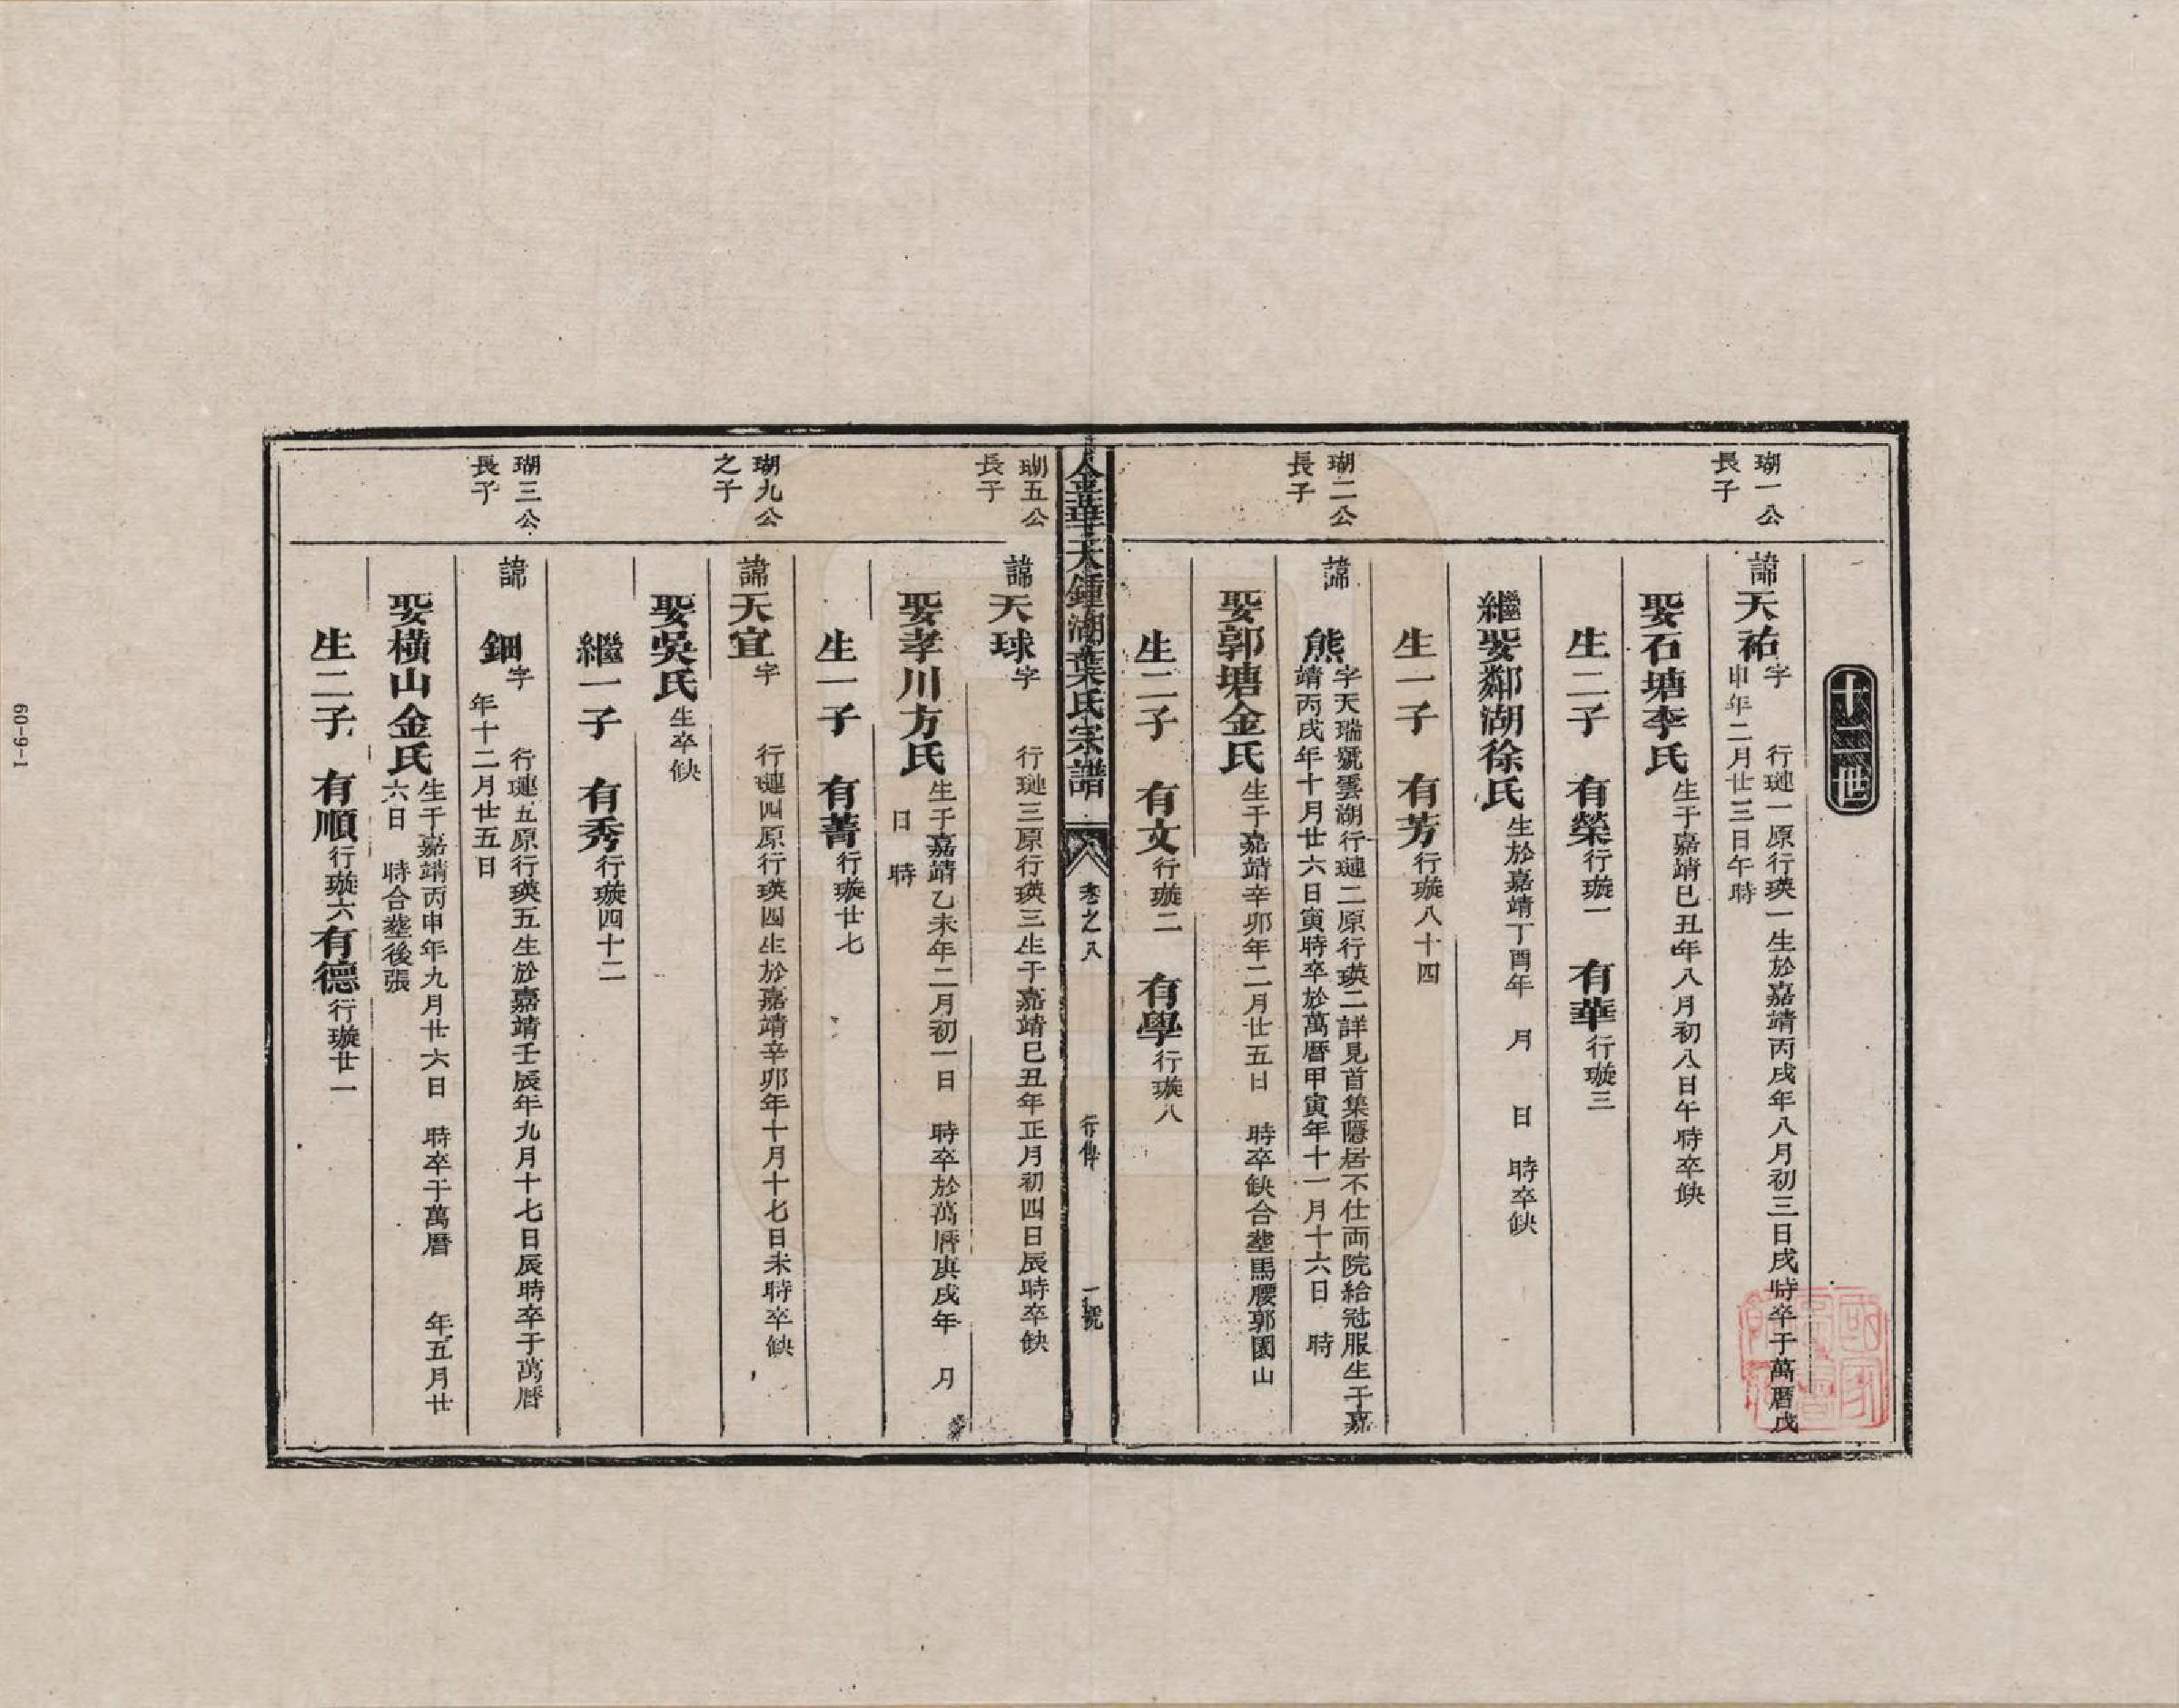 十二世
瑚一公
長子
諱天祐字 行璉一原行瑛一生於嘉靖丙戌年八月初三日戌時卒于萬曆戊
申年二月廿三日午時
娶石塘李氏生于嘉靖己丑年八月初八日午時卒缺
生二子 有榮行璇一 有華行璇三
繼娶鄰湖徐氏生於嘉靖丁酉年 月 日 時卒缺
生一子 有芳行璇八十四
瑚二公
長子
諱 熊字天瑞號雲湖行璉二原行瑛二詳見首集隱居不仕両院給冠服生于嘉
靖丙戌年十月廿六日寅時卒於萬曆甲寅年十一月十六日 時
娶郭塘金氏生于嘉靖辛卯年二月廿五日 時卒缺合塟馬腰郭園山
生二子 有文行璇二 有學行璇八
金華大鍾湖葉氏宗譜 卷之八 行傳 一號
瑚五公
長子
諱天球字 行璉三原行瑛三生于嘉靖己丑年正月初四日辰時卒缺
娶孝川方氏生于嘉靖乙未年二月初一日 時卒於萬曆庚戌年 月
日 時
生一子 有菁行璇廿七
瑚九公
之子
諱天宜字 行璉四原行瑛四生於嘉靖辛卯年十月十七日未時卒缺
娶吳氏生卒缺
繼一子 有秀行璇四十二
瑚三公
長子
諱 鈿字 行璉五原行瑛五生於嘉靖壬辰年九月十七日辰時卒于萬曆
年十二月廿五日
娶橫山金氏生于嘉靖丙申年九月廿六日 時卒于萬曆 年五月廿
六日 時合塟後張
生二子 有順行璇六有德行璇廿一
60-9-1